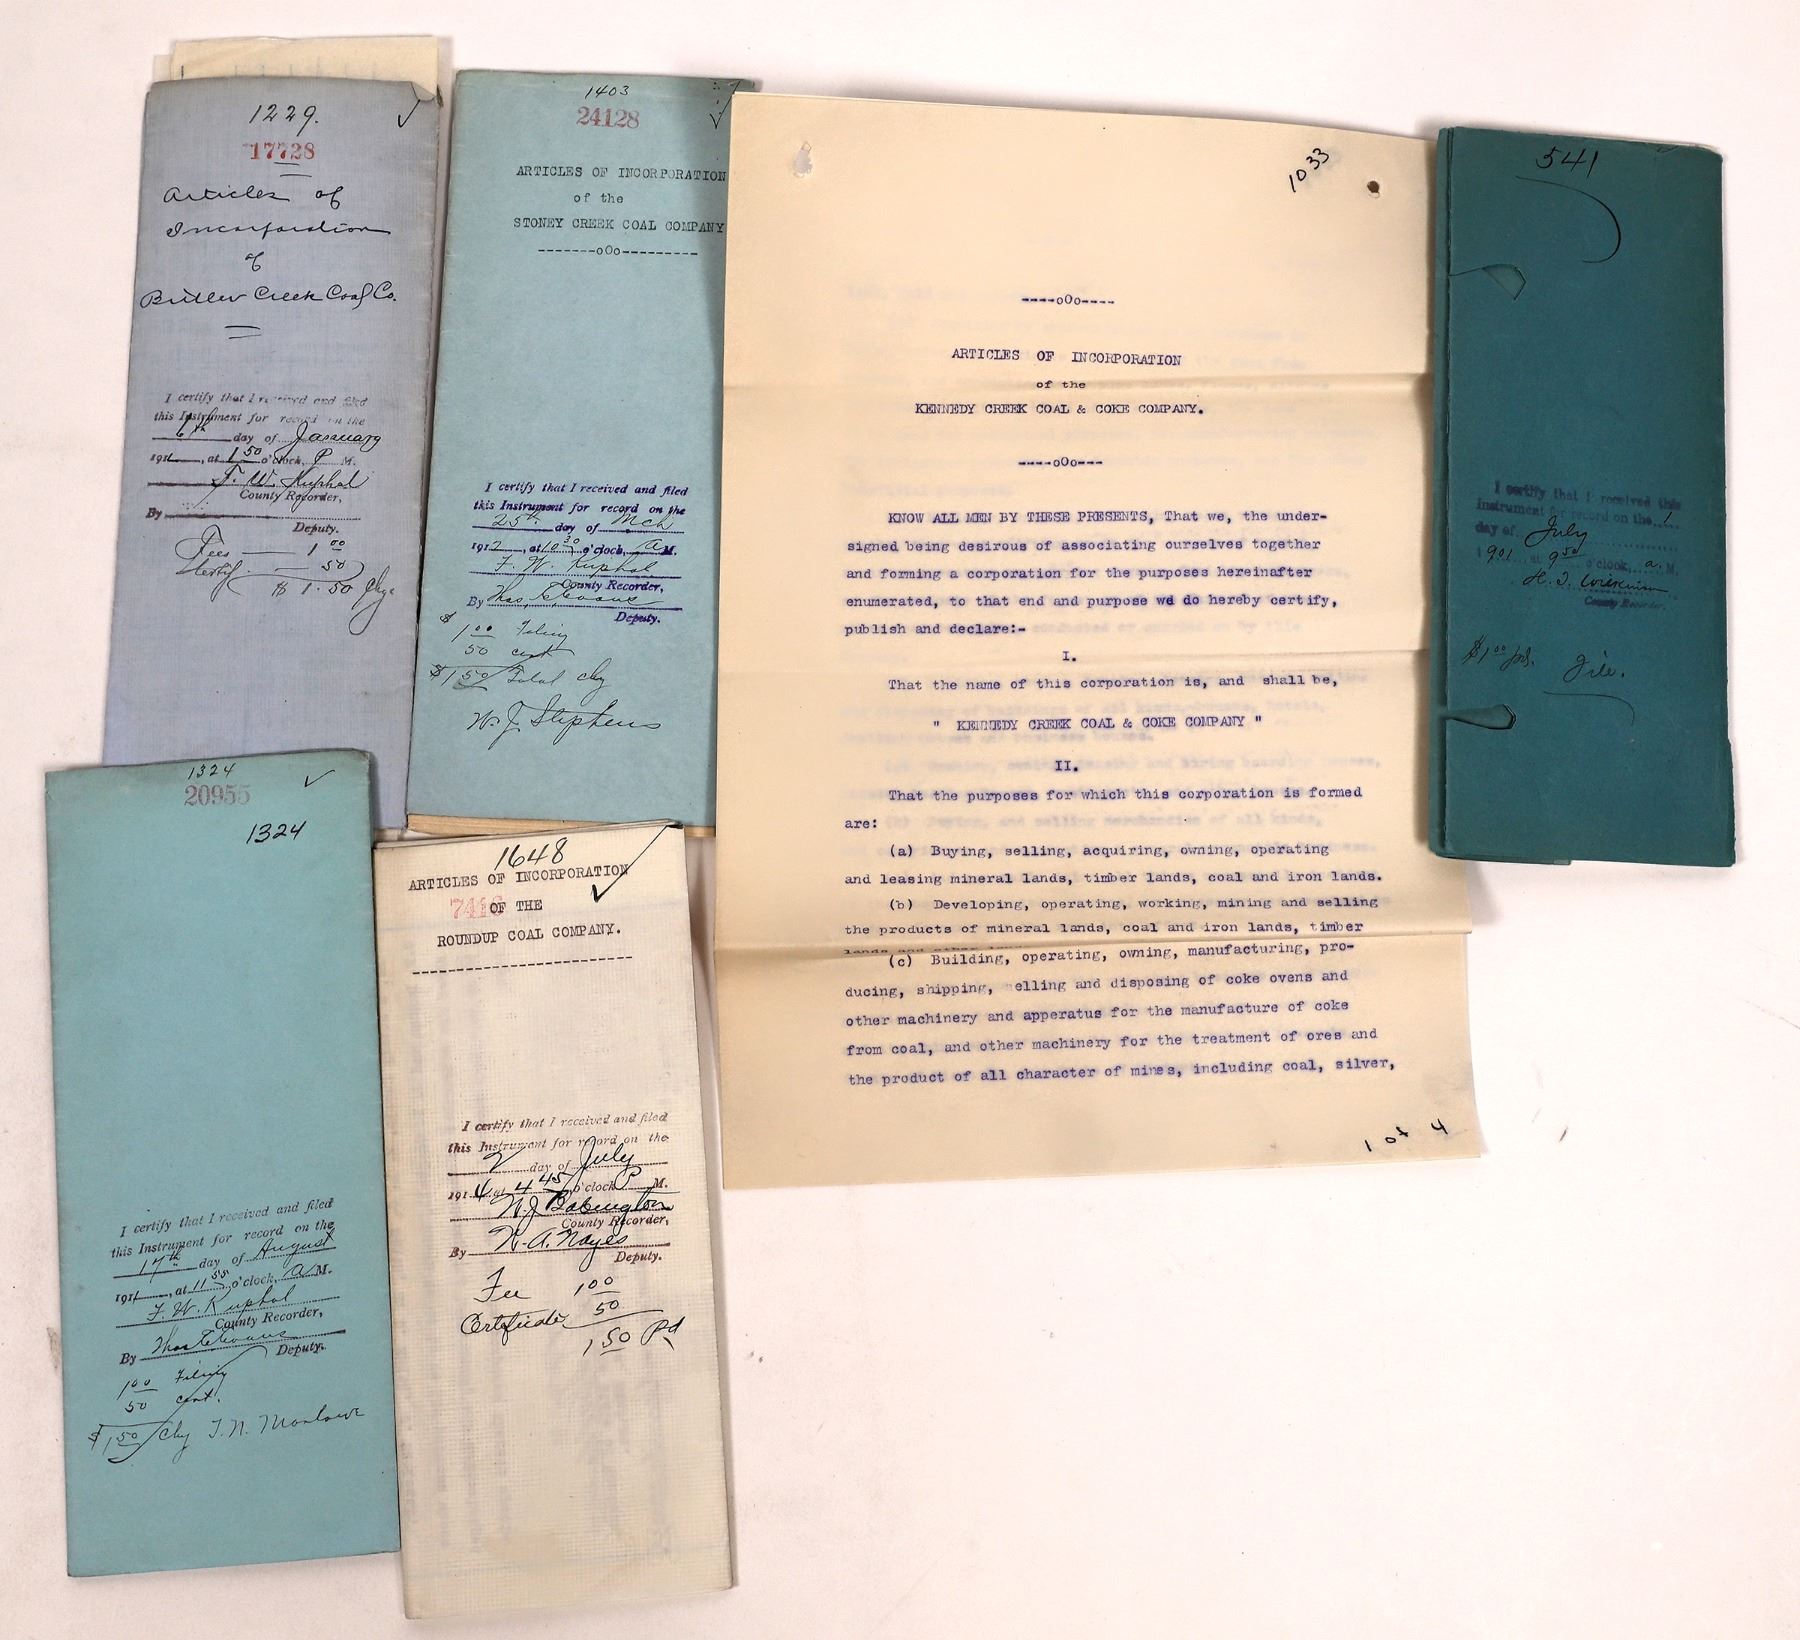 1229.
17728
Articles of
Incorporation
of
Butler Creek Coal Co.
I certify that I received and filed
this Instrument for record on the
6th day of January
1911, at 1 50 o'clock, P M.
F. W. Kuphal
County Recorder,
By
Deputy.
Fees 1 00
Certif 50
$ 1.50 Chg.
1403
24128
ARTICLES OF INCORPORATION
of the
STONEY CREEK COAL COMPANY
-------oOo---------
I certify that I received and filed
this Instrument for record on the
25th day of Mch
1912, at 10 30 o'clock, A M.
F. W. Kuphal
County Recorder,
By Thos. E. Evans
Deputy.
$
1 00 Filing
50 cert
$ 1 50 Total chg
W. J. Stephens
1033
----oOo----
ARTICLES OF INCORPORATION
of the
KENNEDY CREEK COAL & COKE COMPANY.
----oOo---
KNOW ALL MEN BY THESE PRESENTS, That we, the under-
signed being desirous of associating ourselves together
and forming a corporation for the purposes hereinafter
enumerated, to that end and purpose we do hereby certify,
publish and declare:-
I.
That the name of this corporation is, and shall be,
" KENNEDY CREEK COAL & COKE COMPANY "
II.
That the purposes for which this corporation is formed
are:
(a) Buying, selling, acquiring, owning, operating
and leasing mineral lands, timber lands, coal and iron lands.
(b) Developing, operating, working, mining and selling
the products of mineral lands, coal and iron lands, timber
lands and other lands
(c) Building, operating, owning, manufacturing, pro-
ducing, shipping, elling and disposing of coke ovens and
other machinery and apparatus for the manufacture of coke
from coal, and other machinery for the treatment of ores and
the product of all character of mines, including coal, silver,
1 of 4
541
I certify that I received this
instrument for record on the 1
day of July
1901 at 9 50 o'clock, a. M.
County Recorder.
$1 00 pd. File.
1324
20955
1324
I certify that I received and filed
this Instrument for record on the
17th day of August
1911, at 11 55 o'clock, A M.
F. W. Kuphal
County Recorder,
By Thos E Evans
Deputy.
1 00 Filing
50 cert.
$ 1 50 Chg T. N. Marlowe
1648
ARTICLES OF INCORPORATION
OF THE
ROUNDUP COAL COMPANY.
-------------------------
I certify that I received and filed
this Instrument for record on the
2 day of July
1914 at 4 45 o'clock P M.
W. J. Babington
County Recorder,
By H. A. Noyes
Deputy.
Fee 1 00
Certificate 50
1 50 Pd